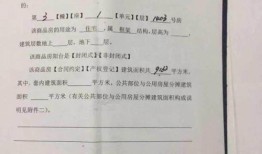 的:
第 3 【幢】【座】 1 【单元】【层】 1003 号房
该商品房的用途为 住宅 ,属 框架 结构,层高为
建筑层数地上 层,地下 层。
该商品房阳台是【封闭式】【非封闭式】
该商品房【合同约定】【产权登记】建筑面积共 平方米,
其中,套内建筑面积 平方米,公共部位与公用房屋分摊建筑
面积 平方米(有关公共部位与公用房屋分摊建筑面积构成说
明见附件二)。